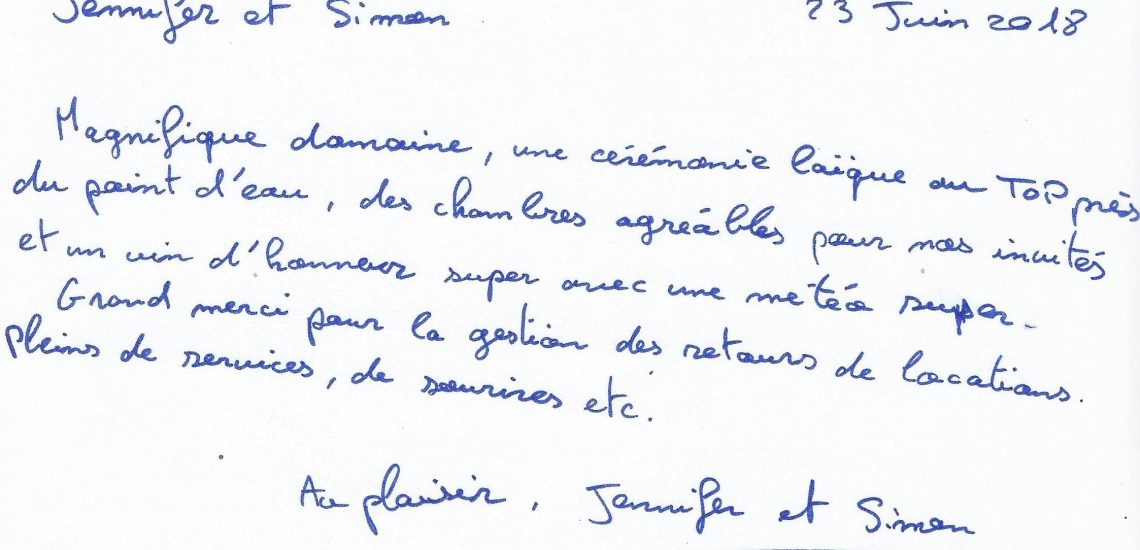 Jennifer et Simon 23 Juin 2018
Magnifique domaine, une cérémonie laïque au TOP près
du point d'eau, des chambres agréables pour nos invités
et un vin d'honneur super avec une météo super.
Grand merci pour la gestion des retours de locations.
pleins de services, de sourires etc.
Au plaisir, Jennifer et Simon